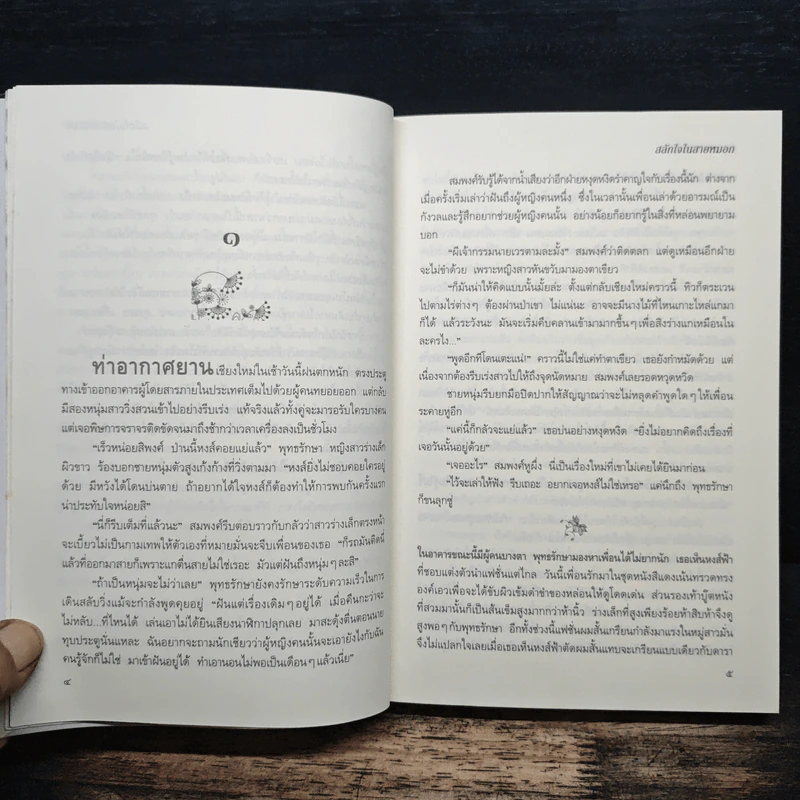 ๑
ท่าอากาศยานเชียงใหม่ในเช้าวันนี้ฝนตกหนัก ตรงประตู
ทางเข้าออกอาคารผู้โดยสารภายในประเทศเต็มไปด้วยผู้คนทยอยออก แต่กลับ
มีสองหนุ่มสาววิ่งสวนเข้าไปอย่างรีบเร่ง แท้จริงแล้วทั้งคู่จะมารอรับใครบางคน
แต่เจอพิษการจราจรติดขัดจนมาถึงช้ากว่าเวลาเครื่องลงเป็นชั่วโมง
“เร็วหน่อยสิพงศ์ ป่านนี้หงส์คอยแย่แล้ว” พุทธรักษา หญิงสาวร่างเล็ก
ผิวขาว ร้องบอกชายหนุ่มตัวสูงเก้งก้างที่วิ่งตามมา “หงส์ยิ่งไม่ชอบคอยใครอยู่
ด้วย มีหวังได้โดนบ่นตาย ถ้าอยากได้ใจหงส์ก็ต้องทำให้การพบกันครั้งแรก
น่าประทับใจหน่อยสิ”
“นี่ก็รีบเต็มที่แล้วนะ” สมพงศ์รีบตอบราวกับกลัวว่าสาวร่างเล็กตรงหน้า
จะเบี้ยวไม่เป็นกามเทพให้ตัวเองที่หมายมั่นจะจีบเพื่อนของเธอ “ก็รถมันติดนี่
แล้วที่ออกมาสายก็เพราะแกตื่นสายไม่ใช่เรอะ มัวแต่ฝันถึงหนุ่มๆ ละสิ”
“ถ้าเป็นหนุ่มจะไม่ว่าเลย” พุทธรักษายังคงรักษาระดับความเร็วในการ
เดินสลับวิ่งแม้จะกำลังพูดคุยอยู่ “ฝันแต่เรื่องเดิมๆ อยู่ได้ เมื่อคืนกะว่าจะ
ไม่หลับ...ที่ไหนได้ เล่นเอาไม่ได้ยินเสียงนาฬิกาปลุกเลย มาสะดุ้งตื่นตอนนาย
ทุบประตูนั่นแหละ ฉันอยากจะถามนักเชียวว่าผู้หญิงคนนั้นจะเอายังไงกับฉัน
คนรู้จักก็ไม่ใช่ มาเข้าฝันอยู่ได้ ทำเอานอนไม่พอเป็นเดือนๆ แล้วเนี่ย”
๔
สลักใจในสายหมอก
สมพงศ์รับรู้ได้จากน้ำเสียงว่าอีกฝ่ายหงุดหงิดรำคาญใจกับเรื่องนี้นัก ต่างจาก
เมื่อครั้งเริ่มเล่าว่าฝันถึงผู้หญิงคนหนึ่ง ซึ่งในเวลานั้นเพื่อนเล่าด้วยอารมณ์เป็น
กังวลและรู้สึกอยากช่วยผู้หญิงคนนั้น อย่างน้อยก็อยากรู้ในสิ่งที่หล่อนพยายาม
บอก
“ผีเจ้ากรรมนายเวรตามละมั้ง” สมพงศ์ว่าติดตลก แต่ดูเหมือนอีกฝ่าย
จะไม่ขำด้วย เพราะหญิงสาวหันขวับมามองตาเขียว
“ก็มันน่าให้คิดแบบนั้นมั้ยล่ะ ตั้งแต่กลับเชียงใหม่คราวนี้ ทิวก็ตระเวน
ไปตามไร่ต่างๆ ต้องผ่านป่าเขา ไม่แน่นะ อาจจะมีนางไม้ที่ไหนเกาะไหล่แกมา
ก็ได้ แล้วระวังนะ มันจะเริ่มคืบคลานเข้ามามากขึ้นๆ เพื่อสิงร่างแกเหมือนใน
ละครไง...”
“พูดอีกทีโดนเตะแน่!” คราวนี้ไม่ใช่แค่ทำตาเขียว เธอยังกำหมัดด้วย แต่
เนื่องจากต้องรีบเร่งสาวไปให้ถึงจุดนัดหมาย สมพงศ์เลยรอดหวุดหวิด
ชายหนุ่มรีบยกมือปิดปากให้สัญญาณว่าจะไม่หลุดคำพูดใดๆ ให้เพื่อน
ระคายหูอีก
“แค่นี้ก็กลัวจะแย่แล้ว” เธอบ่นอย่างหงุดหงิด “ยิ่งไม่อยากคิดถึงเรื่องที่
เจอวันนั้นอยู่ด้วย”
“เจออะไร” สมพงศ์หูผึ่ง นี่เป็นเรื่องใหม่ที่เขาไม่เคยได้ยินมาก่อน
“ไว้จะเล่าให้ฟัง รีบเถอะ อยากเจอหงส์ไม่ใช่เหรอ” แค่นึกถึง พุทธรักษา
ก็ขนลุกซู่
ในอาคารขณะนี้มีผู้คนบางตา พุทธรักษามองหาเพื่อนได้ไม่ยากนัก เธอเห็นหงส์ฟ้า
ที่ชอบแต่งตัวนำแฟชั่นแต่ไกล วันนี้เพื่อนรักมาในชุดหนังสีแดงเน้นทรวดทรง
องค์เอวเพื่อจะได้ขับผิวเข้มคำขำของหล่อนให้ดูโดดเด่น ส่วนรองเท้าบู๊ตหนัง
ที่สวมมานั้นก็เป็นส้นเข็มสูงมากกว่าห้านิ้ว ร่างเล็กที่สูงเพียงร้อยห้าสิบห้าจึงดู
สูงพอๆ กับพุทธรักษา อีกทั้งช่วงนี้แฟชั่นผมสั้นเกรียนกำลังมาแรงในหมู่สาวมั่น
จึงไม่แปลกใจเลยเมื่อเธอเห็นหงส์ฟ้าตัดผมสั้นแทบจะเกรียนแบบเดียวกับดารา
๕